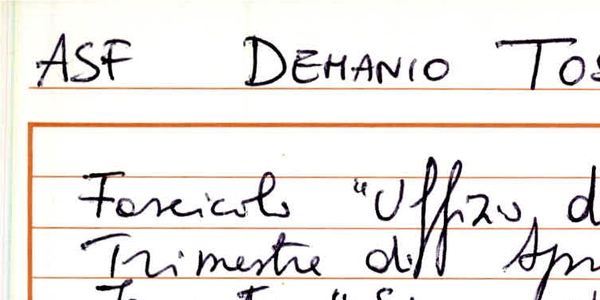 ASF DEMANIO TOS
Fascicolo "Uffizo d
Trimestre di Apr